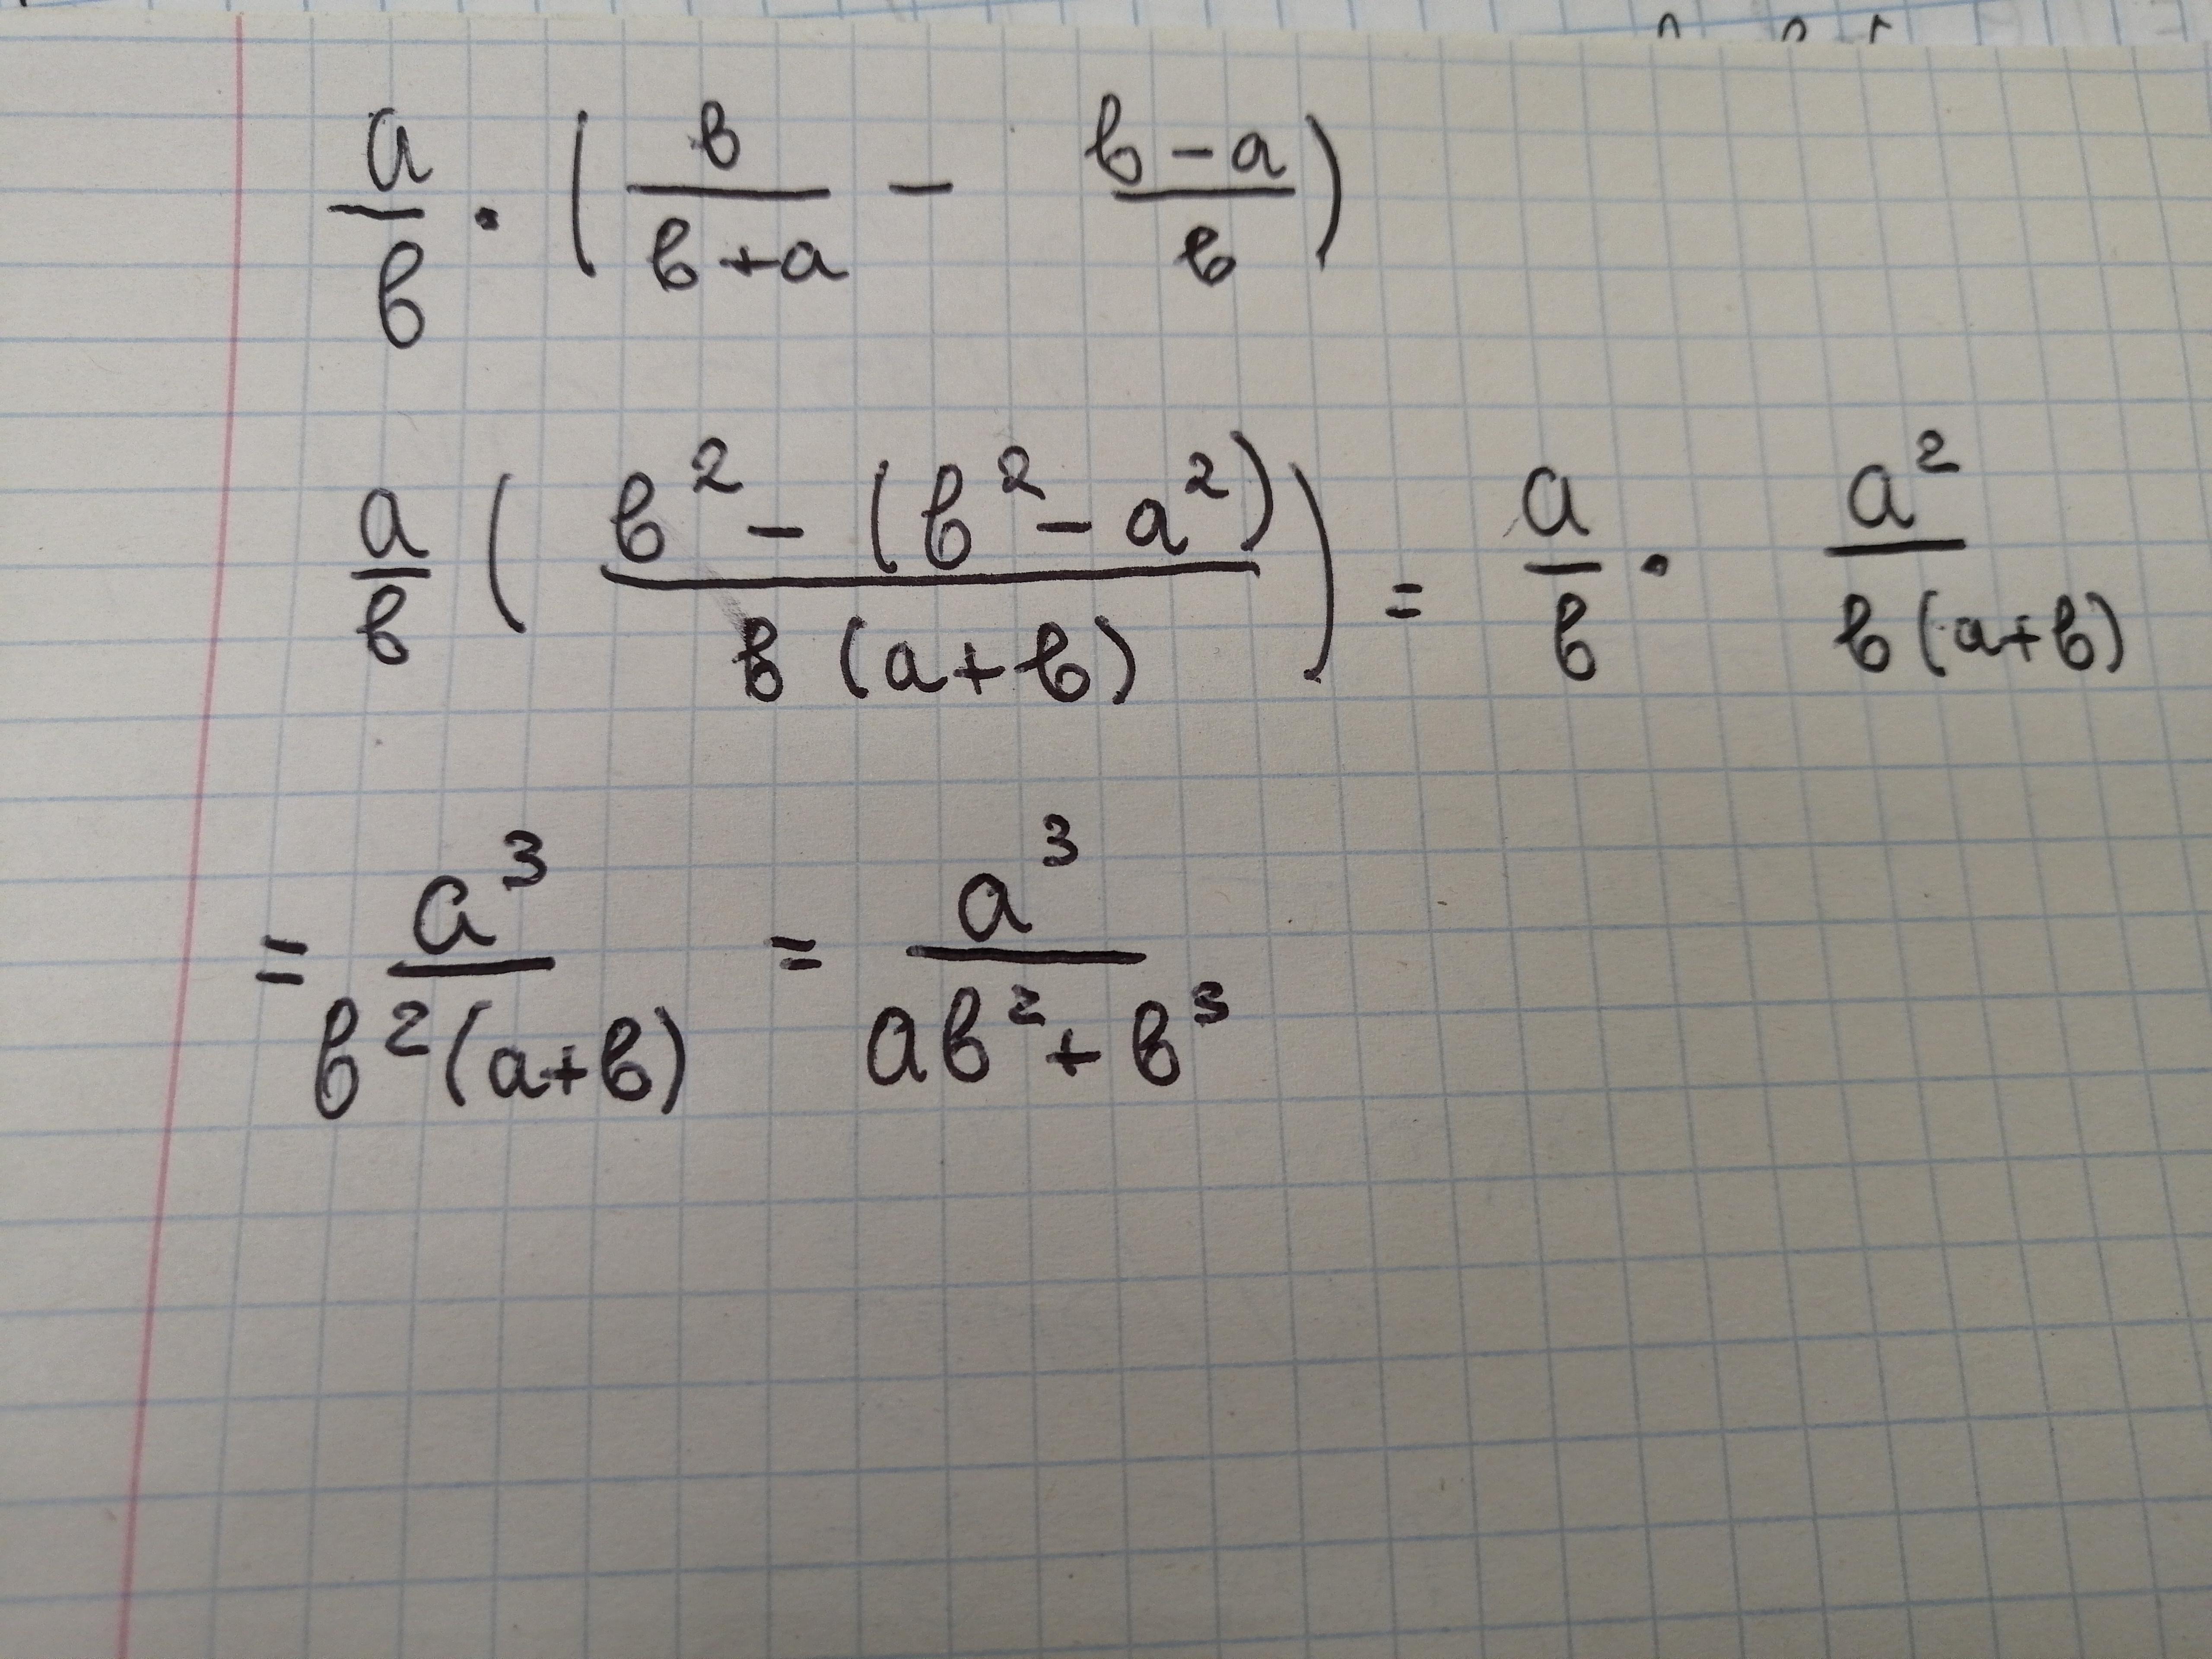 a/b · (b/(b+a) − (b−a)/b)
a/b ((b² − (b² − a²))/(b(a+b))) = a/b · a²/(b(a+b))
= a³/(b²(a+b)) = a³/(ab²+b³)